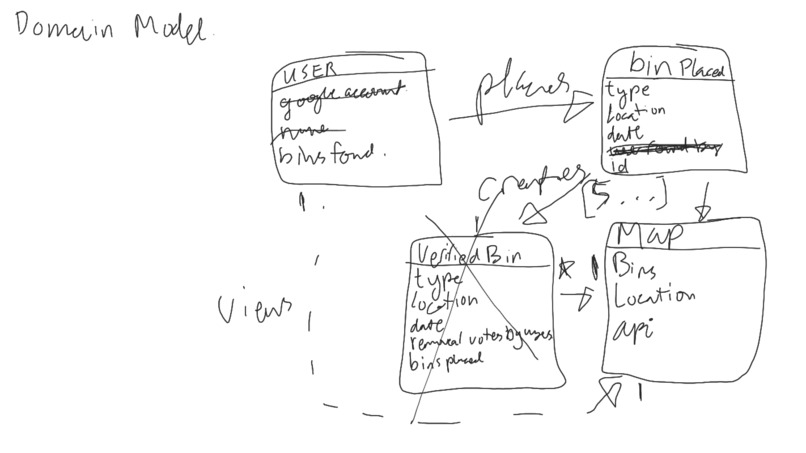 Domain Model.
USER
google account
name
bins fond.
places
bin Placed
type
location
date
id
creates
[5 ...]
1
1
Verified Bin
type
location
date
removal votes by uses
bins placed
* 1
Map
Bins
Location
api
Views
1